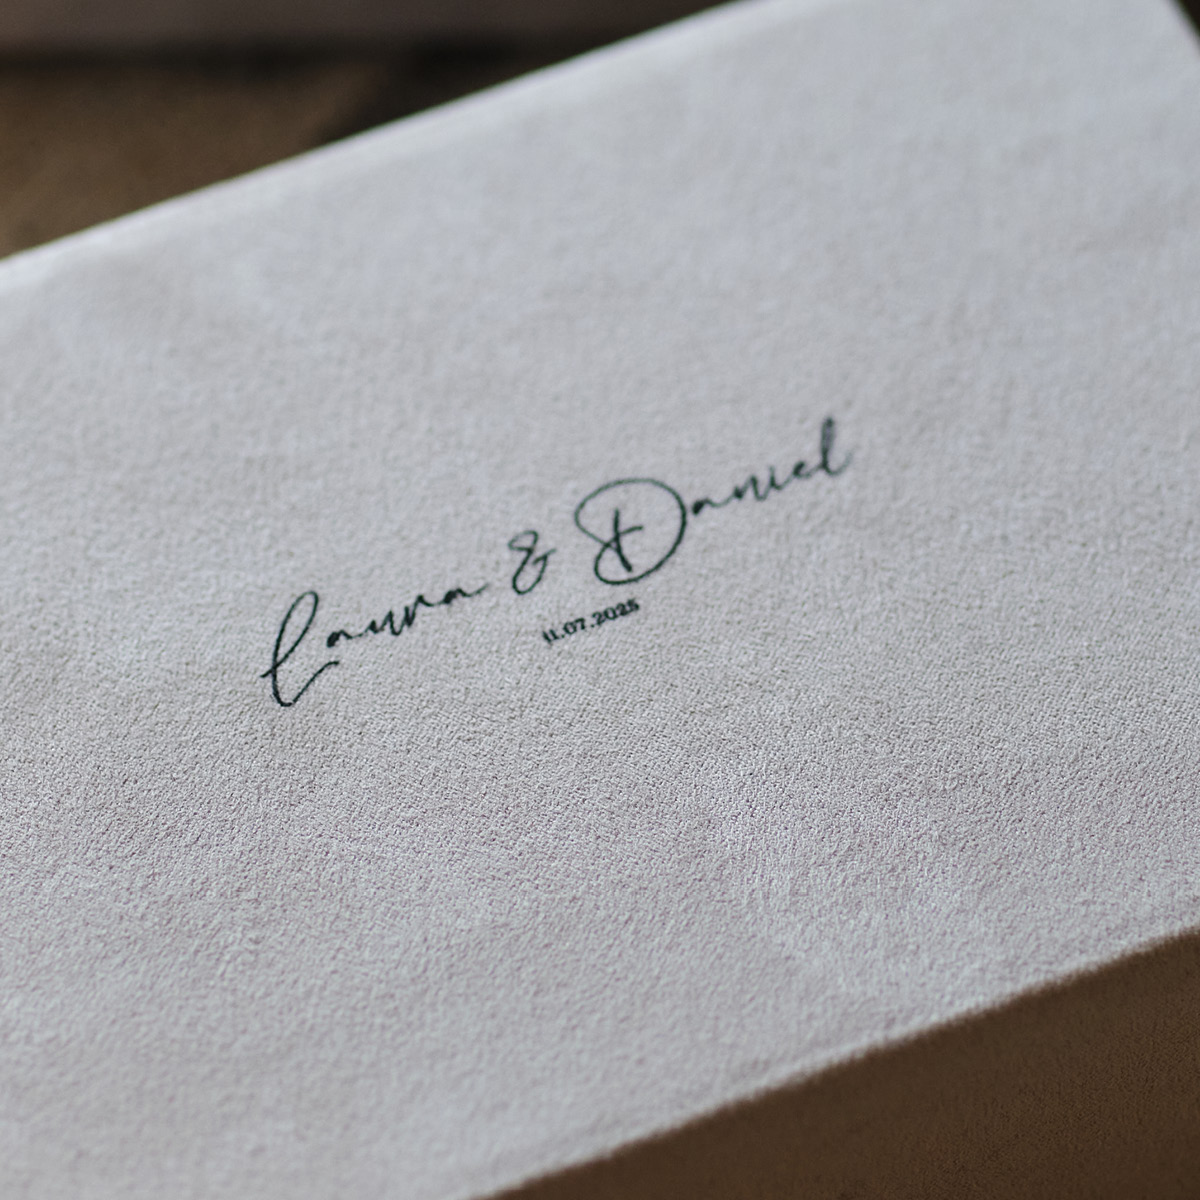 Laura & Daniel
11.07.2025